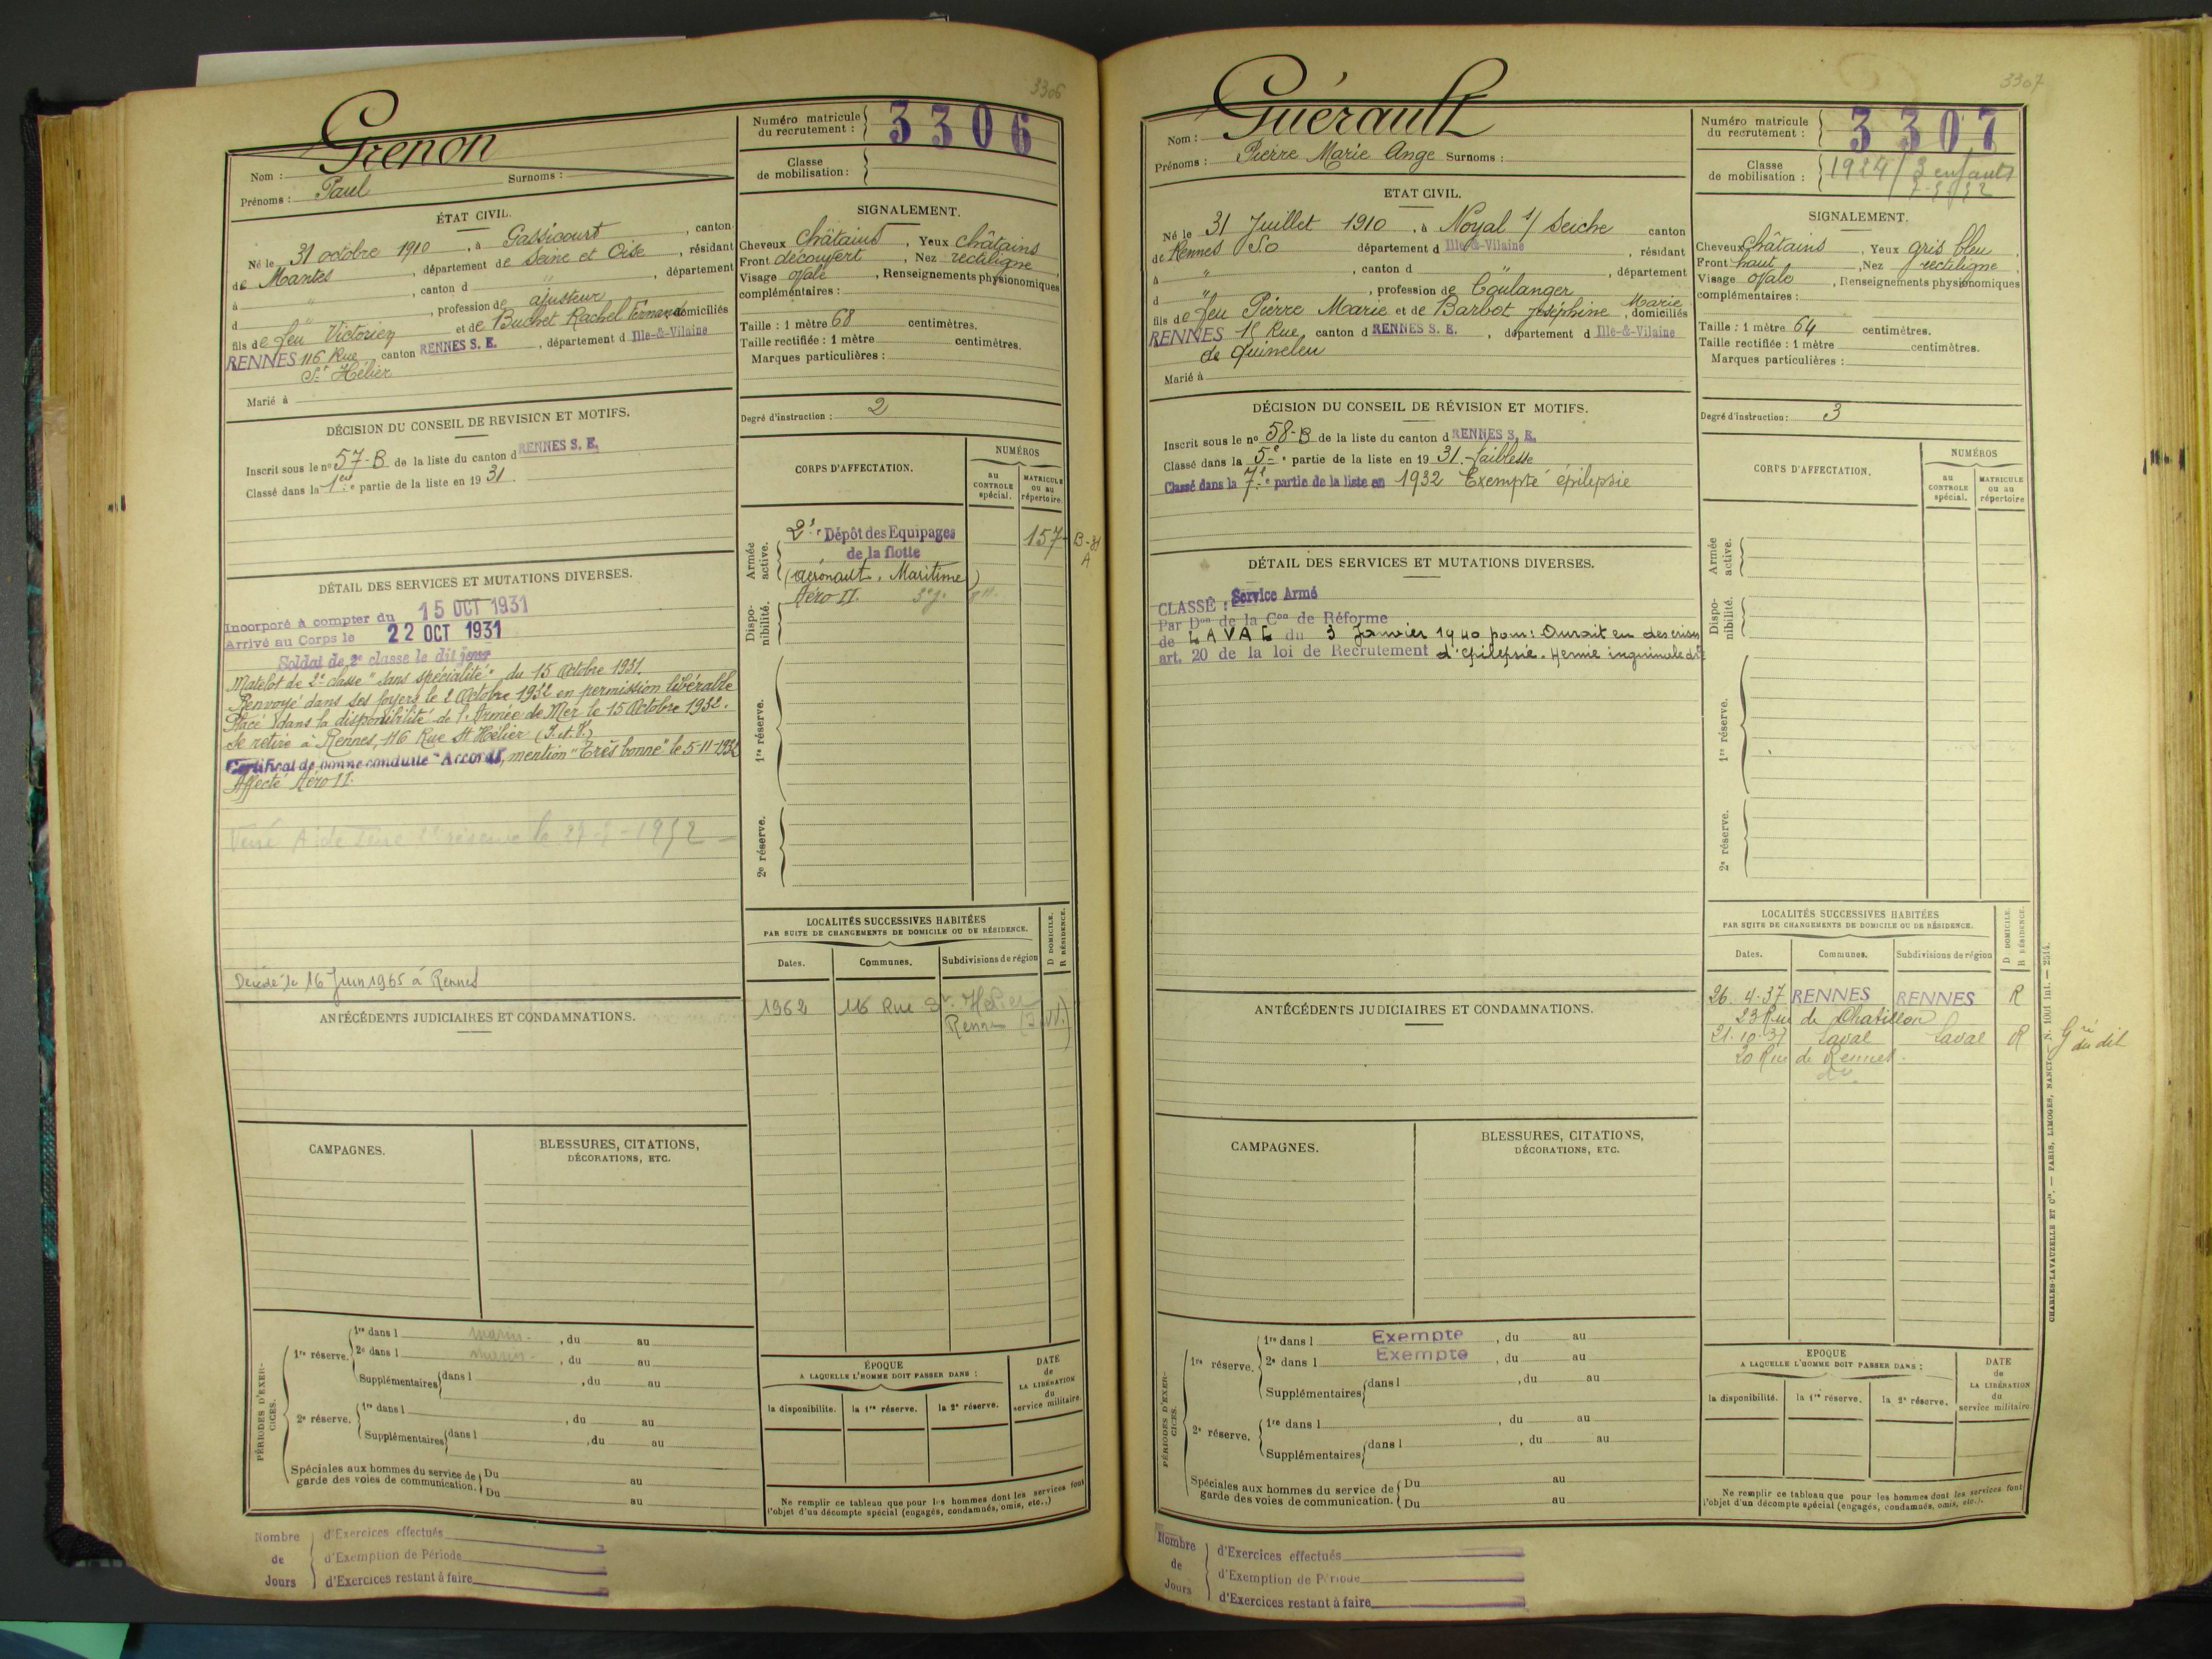 3306
Grenon
Nom :
Prénoms : Paul Surnoms :
Numéro matricule du recrutement : 3306
Classe de mobilisation :
ÉTAT CIVIL.
Né le 31 octobre 1910, à Gassicourt, canton
de Mantes, département de Seine et Oise, résidant
à " , canton d " , département
d " , profession de ajusteur
fils de feu Victorien et de Buchet Rachel Fernande domiciliés
RENNES 116 Rue canton RENNES S. E., département d Ille-&-Vilaine
St Hélier
Marié à
SIGNALEMENT.
Cheveux châtains, Yeux châtains
Front découvert, Nez rectiligne
Visage ovale, Renseignements physionomiques
complémentaires :
Taille : 1 mètre 68 centimètres.
Taille rectifiée : 1 mètre centimètres.
Marques particulières :
Degré d'instruction : 2
DÉCISION DU CONSEIL DE REVISION ET MOTIFS.
Inscrit sous le no 57-B de la liste du canton d RENNES S. E.
Classé dans la 1ere partie de la liste en 19 31.
DÉTAIL DES SERVICES ET MUTATIONS DIVERSES.
Incorporé à compter du 15 OCT 1931
Arrivé au Corps le 22 OCT 1931
Soldat de 2e classe le dit jour
Matelot de 2e classe "sans spécialité" du 15 Octobre 1931.
Renvoyé dans ses foyers le 2 Octobre 1932 en permission libérable
Placé dans la disponibilité de l'Armée de Mer le 15 Octobre 1932.
Se retire à Rennes, 116 Rue St Hélier (I.et.V.)
Certificat de bonne conduite "Accordé", mention "Très bonne" le 5-11-1932
Affecté Aéro II.
Décédé le 16 Juin 1965 à Rennes
CORPS D'AFFECTATION.
NUMÉROS
au CONTROLE spécial.
MATRICULE ou au répertoire.
Armée active.
2e Dépôt des Equipages 157-B-31
de la flotte A
(Aéronaut. Maritime)
Aéro II.
Disponibilité.
1re réserve.
2e réserve.
LOCALITÉS SUCCESSIVES HABITÉES
PAR SUITE DE CHANGEMENTS DE DOMICILE OU DE RÉSIDENCE.
D DOMICILE.
R RÉSIDENCE.
Dates. Communes. Subdivisions de région
1962 116 Rue St. Hélier
Rennes (I.V.)
ANTÉCÉDENTS JUDICIAIRES ET CONDAMNATIONS.
CAMPAGNES.
BLESSURES, CITATIONS,
DÉCORATIONS, ETC.
PÉRIODES D'EXERCICES.
1re réserve.
1re dans l marin, du au
2e dans l marin, du au
Supplémentaires dans l , du au
2e réserve.
1re dans l , du au
Supplémentaires dans l , du au
Spéciales aux hommes du service de garde des voies de communication.
Du au
Du au
ÉPOQUE
A LAQUELLE L'HOMME DOIT PASSER DANS :
la disponibilité. la 1re réserve. la 2e réserve.
DATE de LA LIBÉRATION du service militaire.
Ne remplir ce tableau que pour les hommes dont les services font
l'objet d'un décompte spécial (engagés, condamnés, omis, etc..)
Nombre de Jours
d'Exercices effectués
d'Exemption de Période
d'Exercices restant à faire
3307
Nom : Guérault
Prénoms : Pierre Marie Ange Surnoms :
Numéro matricule du recrutement : 3307
Classe de mobilisation : 1924 / 3 enfants
ETAT CIVIL.
Né le 31 Juillet 1910, à Noyal s/ Seiche canton
de Rennes So département d Ille-&-Vilaine, résidant
à " , canton d " , département
d " , profession de boulanger
fils de feu Pierre Marie et de Barbot Joséphine Marie, domiciliés
RENNES Rue, canton d RENNES S. E., département d Ille-&-Vilaine
de Quineleu
Marié à
SIGNALEMENT.
Cheveux châtains, Yeux gris bleu
Front haut, Nez rectiligne
Visage ovale, Renseignements physionomiques
complémentaires :
Taille : 1 mètre 64 centimètres.
Taille rectifiée : 1 mètre centimètres.
Marques particulières :
Degré d'instruction : 3
DÉCISION DU CONSEIL DE RÉVISION ET MOTIFS.
Inscrit sous le no 58-B de la liste du canton d RENNES S. E.
Classé dans la 5e partie de la liste en 19 31. faiblesse
Classé dans la 7e partie de la liste en 1932 Exempté épilepsie
DÉTAIL DES SERVICES ET MUTATIONS DIVERSES.
CLASSÉ : Service Armé
Par Don de la Con de Réforme
de LAVAL du 3 Janvier 1940 pour : Aurait eu des crises
art. 20 de la loi de Recrutement d'épilepsie. Hernie inguinale dte
CORPS D'AFFECTATION.
NUMÉROS
au CONTROLE spécial.
MATRICULE ou au répertoire
Armée active.
Disponibilité.
1re réserve.
2e réserve.
LOCALITÉS SUCCESSIVES HABITÉES
PAR SUITE DE CHANGEMENTS DE DOMICILE OU DE RÉSIDENCE.
D DOMICILE.
R RÉSIDENCE.
Dates. Communes. Subdivisions de région
26.4.37 RENNES RENNES R
23 Rue de Chatillon
21.10.37 Laval Laval R
20 Rue de Rennes.
Gie du dit
ANTÉCÉDENTS JUDICIAIRES ET CONDAMNATIONS.
CAMPAGNES.
BLESSURES, CITATIONS,
DÉCORATIONS, ETC.
PÉRIODES D'EXERCICES.
1re réserve.
1re dans l Exempte, du au
2e dans l Exempte, du au
Supplémentaires dans l , du au
2e réserve.
1re dans l , du au
Supplémentaires dans l , du au
Spéciales aux hommes du service de garde des voies de communication.
Du au
Du au
EPOQUE
A LAQUELLE L'HOMME DOIT PASSER DANS :
la disponibilité. la 1re réserve. la 2e réserve.
DATE de LA LIBÉRATION du service militaire.
Ne remplir ce tableau que pour les hommes dont les services font
l'objet d'un décompte spécial (engagés, condamnés, omis, etc.).
CHARLES-LAVAUZELLE ET Cie. — PARIS, LIMOGES, NANCY — N. 1001 Int. — 2514.
Nombre de Jours
d'Exercices effectués
d'Exemption de Période
d'Exercices restant à faire